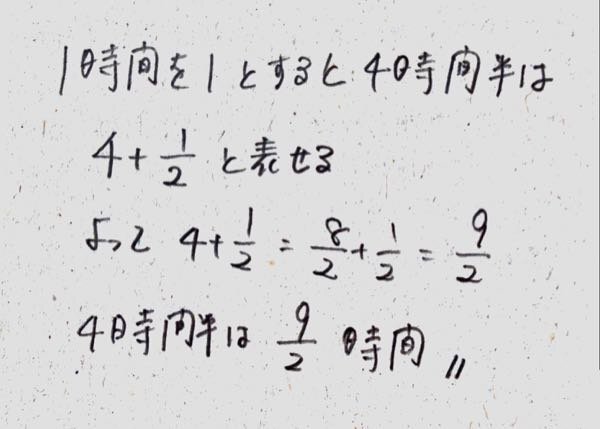 1時間を1とすると4時間半は
4+1/2 と表せる
よって 4+1/2 = 8/2+1/2 = 9/2
4時間半は 9/2 時間〃